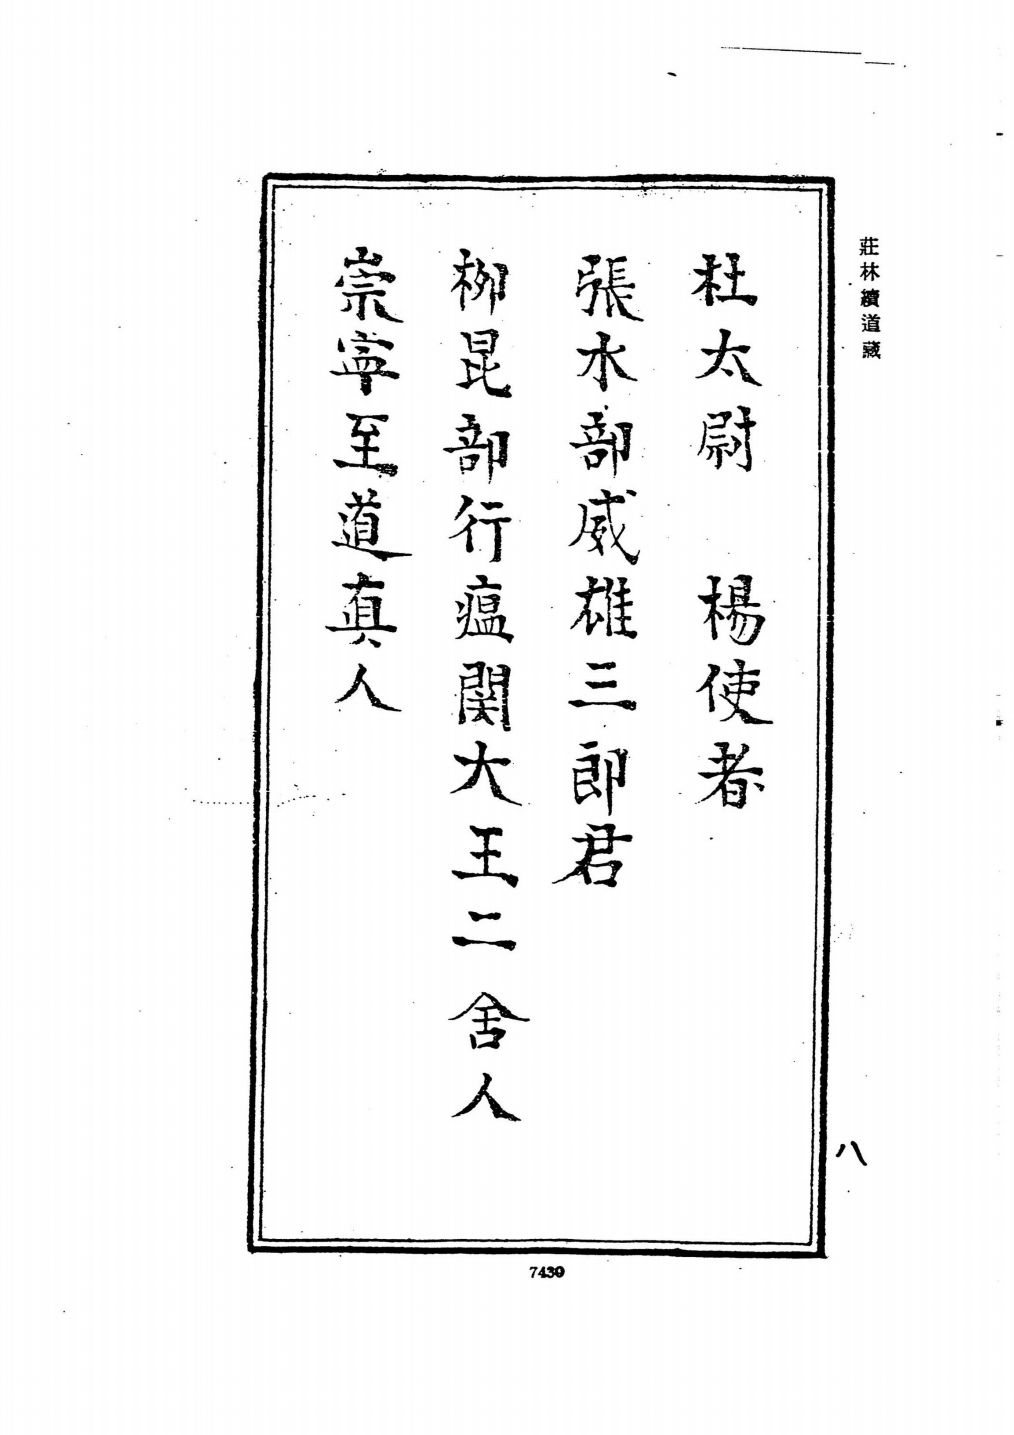 莊林續道藏
杜太尉　楊使者
張水部威雄三郎君
柳昆部行瘟関大王二舍人
崇寧至道真人
八
7430